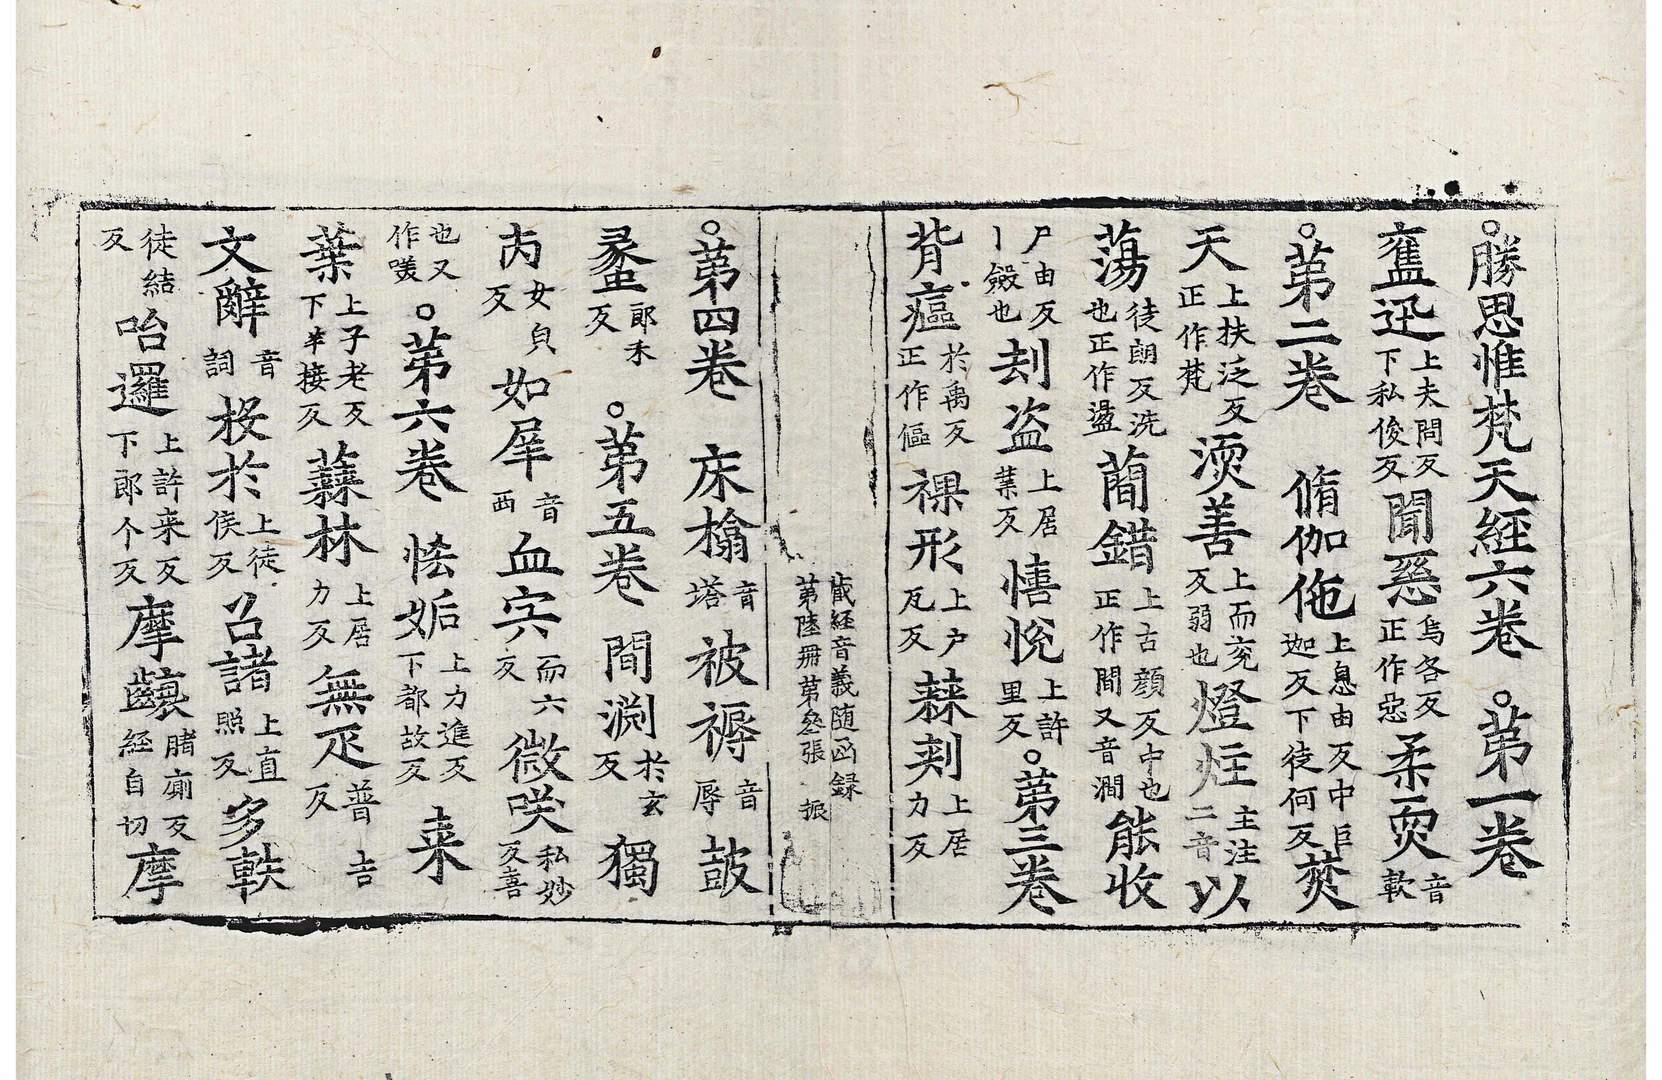 ○勝思惟梵天經六卷 ○苐一卷
奮迅上夫問反下私俊反 聞惡烏各反正作惡 柔耎音軟
○苐二卷 脩伽佗上息由反中巨迦反下徒何反 焚
天上扶泛反正作梵 渜善上而兖反弱也 燈炷主注二音 以
蕩徒朗反洗也正作盪 蕳錯上古顔反中也正作間又音澗 能收
尸由反歛也 刦盗上居葉反 憘悅上許里反 ○苐三卷
背瘟於禹反正作傴 裸形上户瓦反 蕀刾上居力反
藏經音義随函録
苐陸冊苐叄張 振
○苐四卷 床㯓音塔 被褥音辱 鼓
蠡郎禾反 ○苐五卷 間渊於玄反 獨
女皃反 如犀音西 血宍而六反 微咲私妙反喜
也又作𠸍 ○苐六卷 恡妬上力進反下都故反 来
葉上子老反下羊接反 蕀林上居力反 無疋普吉反
文辭音詞 投於上徒侯反 召諸上直照反 多軼
徒結反 咍邏上許来反下郎个反 摩𪘨睹廁反經自切 摩